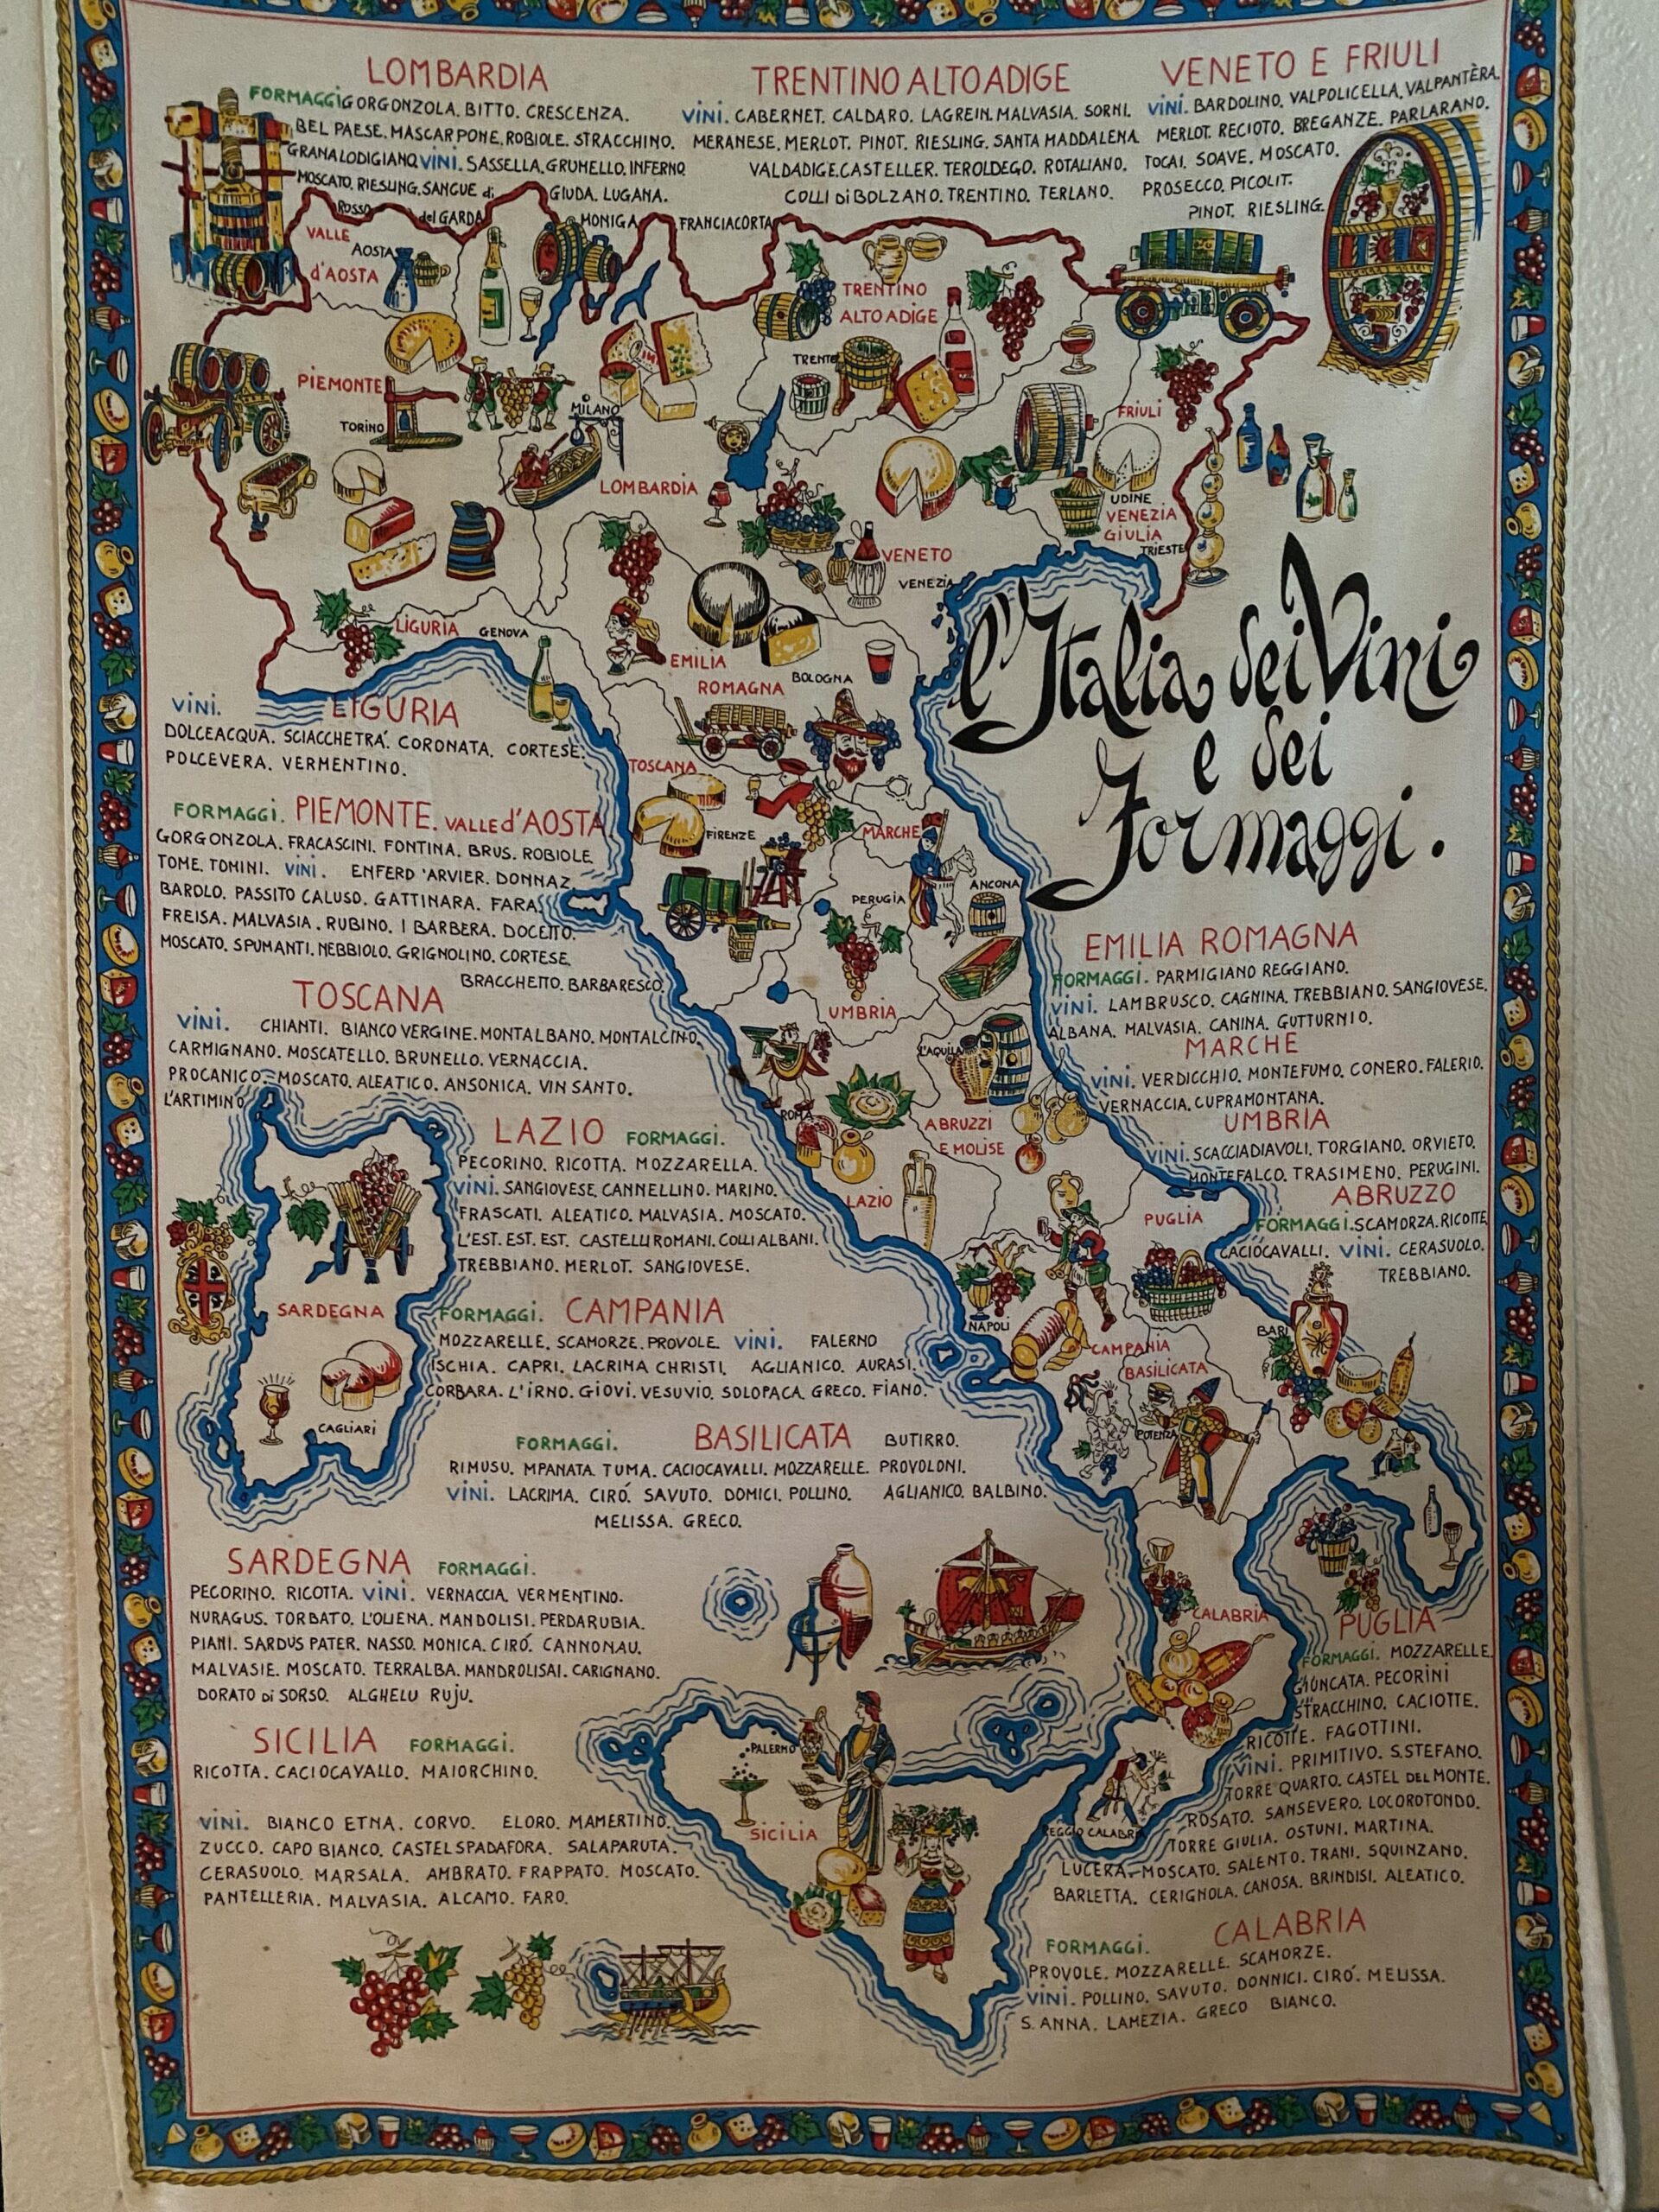 LOMBARDIA
FORMAGGI GORGONZOLA. BITTO. CRESCENZA.
BEL PAESE. MASCARPONE. ROBIOLE. STRACCHINO.
GRANA LODIGIANO. VINI. SASSELLA. GRUMELLO. INFERNO
MOSCATO. RIESLING. SANGUE di GIUDA. LUGANA.
ROSSO del GARDA MONIGA FRANCIACORTA
TRENTINO ALTO ADIGE
VINI. CABERNET. CALDARO. LAGREIN. MALVASIA. SORNI.
MERANESE. MERLOT. PINOT. RIESLING. SANTA MADDALENA
VALDADIGE. CASTELLER. TEROLDEGO. ROTALIANO.
COLLI Di BOLZANO. TRENTINO. TERLANO.
VENETO E FRIULI
VINI. BARDOLINO. VALPOLICELLA. VALPANTÈRA.
MERLOT. RECIOTO. BREGANZE. PARLARANO.
TOCAI. SOAVE. MOSCATO.
PROSECCO. PICOLIT.
PINOT. RIESLING.
VALLE
d'AOSTA
AOSTA
TRENTINO
ALTO ADIGE
TRENTO
PIEMONTE
TORINO
MILANO
LOMBARDIA
FRIULI
UDINE
VENEZIA
GIULIA
TRIESTE
VENETO
VENEZIA
LIGURIA
GENOVA
EMILIA
ROMAGNA
BOLOGNA
l'Italia dei Vini
e dei
Formaggi.
VINI. LIGURIA
DOLCEACQUA. SCIACCHETRÁ. CORONATA. CORTESE.
POLCEVERA. VERMENTINO.
TOSCANA
FIRENZE
MARCHE
ANCONA
PERUGIA
UMBRIA
FORMAGGI. PIEMONTE. VALLE d'AOSTA
GORGONZOLA. FRACASCINI. FONTINA. BRUS. ROBIOLE
TOME. TOMINI. VINI. ENFERD 'ARVIER. DONNAZ.
BAROLO. PASSITO CALUSO. GATTINARA. FARA.
FREISA. MALVASIA. RUBINO. I BARBERA. DOCETTO.
MOSCATO. SPUMANTI. NEBBIOLO. GRIGNOLINO. CORTESE.
BRACCHETTO. BARBARESCO.
TOSCANA
VINI. CHIANTI. BIANCO VERGINE. MONTALBANO. MONTALCINO.
CARMIGNANO. MOSCATELLO. BRUNELLO. VERNACCIA.
PROCANICO. MOSCATO. ALEATICO. ANSONICA. VIN SANTO.
L'ARTIMINO
EMILIA ROMAGNA
FORMAGGI. PARMIGIANO REGGIANO.
VINI. LAMBRUSCO. CAGNINA. TREBBIANO. SANGIOVESE.
ALBANA. MALVASIA. CANINA. GUTTURNIO.
MARCHE
VINI. VERDICCHIO. MONTEFUMO. CONERO. FALERIO.
VERNACCIA. CUPRAMONTANA.
UMBRIA
VINI. SCACCIADIAVOLI. TORGIANO. ORVIETO.
MONTEFALCO. TRASIMENO. PERUGINI.
ABRUZZO
FORMAGGI. SCAMORZA. RICOTTE
CACIOCAVALLI. VINI. CERASUOLO.
TREBBIANO.
L'AQUILA
ROMA
ABRUZZI
E MOLISE
LAZIO
PUGLIA
LAZIO FORMAGGI.
PECORINO. RICOTTA. MOZZARELLA.
VINI. SANGIOVESE. CANNELLINO. MARINO.
FRASCATI. ALEATICO. MALVASIA. MOSCATO.
L'EST. EST. EST. CASTELLI ROMANI. COLLI ALBANI.
TREBBIANO. MERLOT. SANGIOVESE.
SARDEGNA
CAGLIARI
FORMAGGI. CAMPANIA
MOZZARELLE. SCAMORZE. PROVOLE. VINI. FALERNO
ISCHIA. CAPRI. LACRIMA CHRISTI. AGLIANICO. AURASI.
CORBARA. L'IRNO. GIOVI. VESUVIO. SOLOPACA. GRECO. FIANO.
NAPOLI
CAMPANIA
BASILICATA
POTENZA
BARI
FORMAGGI. BASILICATA BUTIRRO.
RIMUSU. MPANATA. TUMA. CACIOCAVALLI. MOZZARELLE. PROVOLONI.
VINI. LACRIMA. CIRÓ. SAVUTO. DOMICI. POLLINO. AGLIANICO. BALBINO.
MELISSA. GRECO.
SARDEGNA FORMAGGI.
PECORINO. RICOTTA. VINI. VERNACCIA. VERMENTINO.
NURAGUS. TORBATO. L'OLIENA. MANDOLISI. PERDARUBIA.
PIANI. SARDUS PATER. NASSO. MONICA. CIRÓ. CANNONAU.
MALVASIE. MOSCATO. TERRALBA. MANDROLISAI. CARIGNANO.
DORATO di SORSO. ALGHELU RUJU.
CALABRIA
PUGLIA
FORMAGGI. MOZZARELLE.
GIUNCATA. PECORINI
STRACCHINO. CACIOTTE.
RICOTTE. FAGOTTINI.
VINI. PRIMITIVO. S. STEFANO.
TORRE QUARTO. CASTEL DEL MONTE.
ROSATO. SANSEVERO. LOCOROTONDO.
TORRE GIULIA. OSTUNI. MARTINA.
LUCERA. MOSCATO. SALENTO. TRANI. SQUINZANO.
BARLETTA. CERIGNOLA. CANOSA. BRINDISI. ALEATICO.
SICILIA FORMAGGI.
RICOTTA. CACIOCAVALLO. MAIORCHINO.
VINI. BIANCO ETNA. CORVO. ELORO. MAMERTINO.
ZUCCO. CAPO BIANCO. CASTELSPADAFORA. SALAPARUTA.
CERASUOLO. MARSALA. AMBRATO. FRAPPATO. MOSCATO.
PANTELLERIA. MALVASIA. ALCAMO. FARO.
PALERMO
SICILIA
REGGIO CALABRIA
FORMAGGI. CALABRIA
PROVOLE. MOZZARELLE. SCAMORZE.
VINI. POLLINO. SAVUTO. DONNICI. CIRÓ. MELISSA.
S. ANNA. LAMEZIA. GRECO BIANCO.